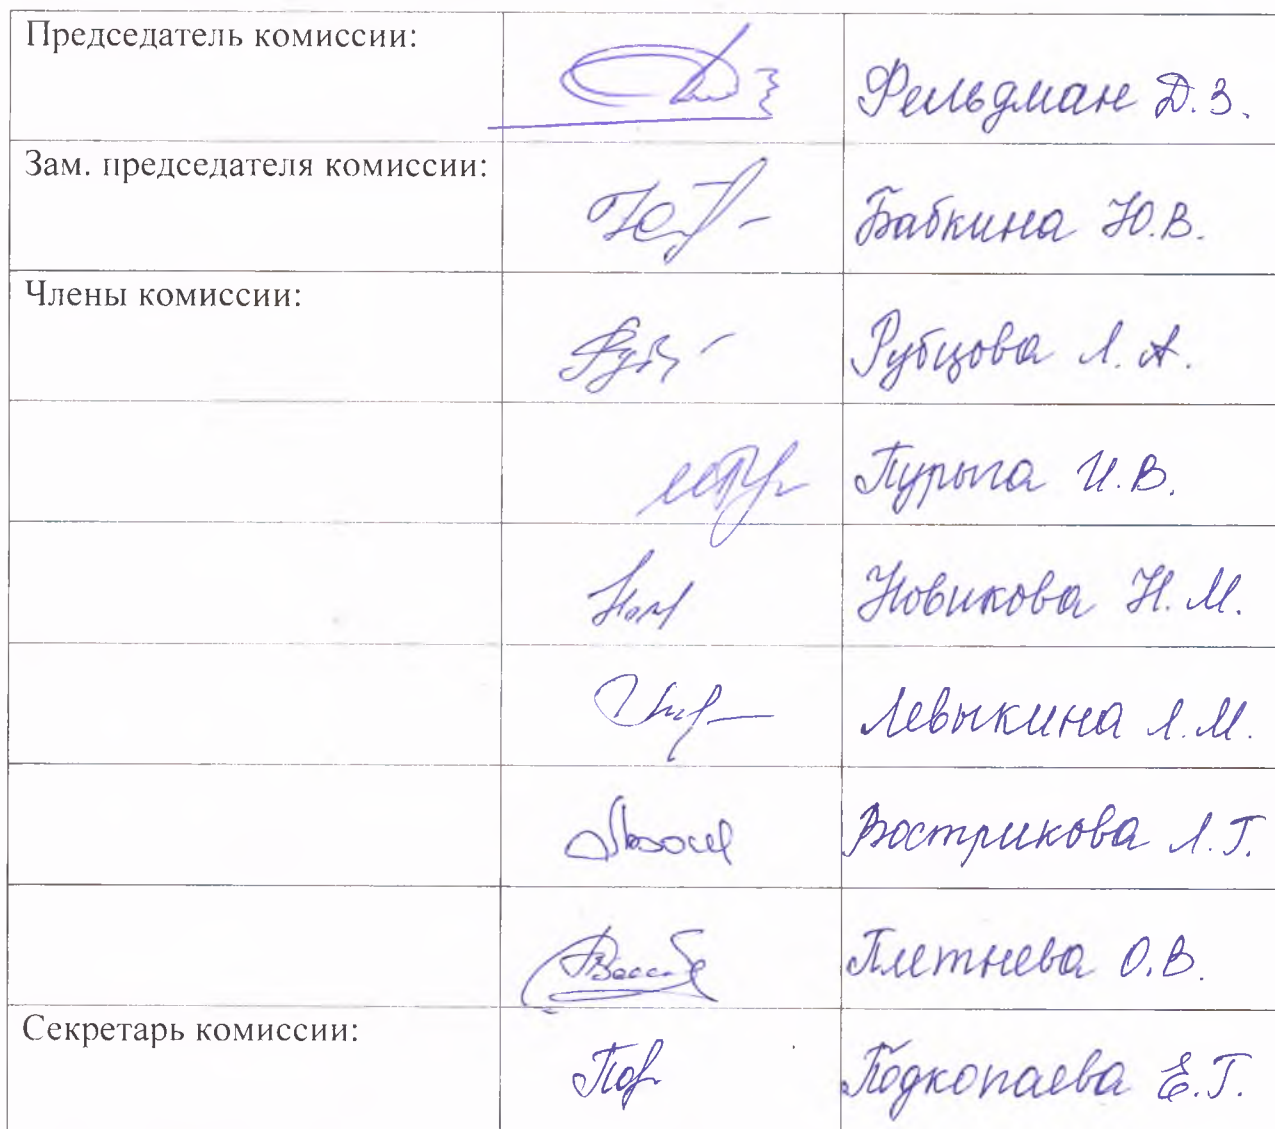 Председатель комиссии:
Фельдман Д.З.
Зам. председателя комиссии:
Бабкина Ю.В.
Члены комиссии:
Рубцова Л.А.
Пурыга И.В.
Новикова Н.М.
Левыкина Л.М.
Вострикова Л.Г.
Плетнева О.В.
Секретарь комиссии:
Подкопаева Е.Г.